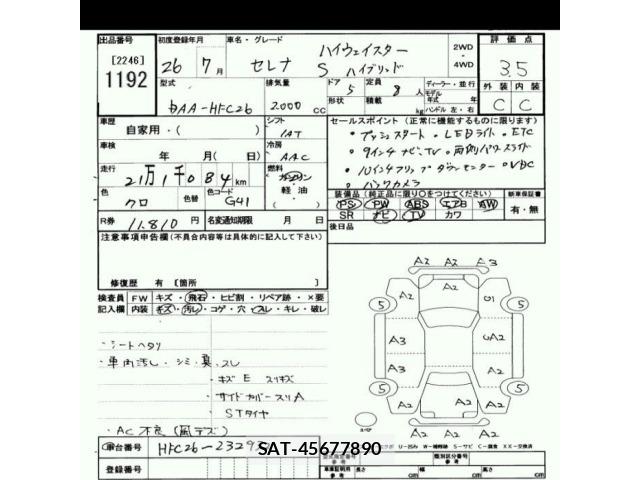 出品番号 初度登録年月 車名・グレード 2WD・4WD 評価点
[2246]
1192
26年 7月 セレナ ハイウェイスター
S ハイブリッド
3.5
型式 排気量 ドア 5 定員 8人 ディーラー・並行 外装 内装
DAA-HFC26 2000 cc 形状 積載 kg モデル年式 年 ハンドル 左・右 C C
車歴 自家用・( ) シフト IAT セールスポイント (正常に機能するものに限ります)
車検 年 月(日) 冷房 AAC ・プッシュスタート・LEDライト・ETC
・9インチナビ、TV・両側パワースライド
走行 21万1千084km 燃料 ガソリン・軽油( ) ・10インチフリップダウンモニター・VDC
・バックカメラ
色 クロ 色替 色コード G41 装備品 (純正品に限り○をつけてください) 新車保証書
PS PW ABS エアB AW 有・無
SR ナビ TV カワ
R券 11.810円 名変通知期限 月 日 後日品
注意事項申告欄(不具合内容等は具体的に記入して下さい)
修復歴 有 [箇所 ]
A2 A2 A3
検査員記入欄 FW キズ・飛石・ヒビ割・リペア跡・×要
内装 キズ・汚レ・コゲ・穴・スレ・キレ・破レ
A2 U1
5 5
A3 A2
・シートヘタリ
・車内汚レ・シミ・臭、スレ
A3 A2
・キズE スリキズ
5 5
・サイドカバースリA
A2 A2 A2
・STタイヤ
A2
・AC不良(風デズ)
車台番号 HFC26-23293
SAT-45677890
登録番号
車室証明用参考 長さ cm 幅 cm 高さ cm